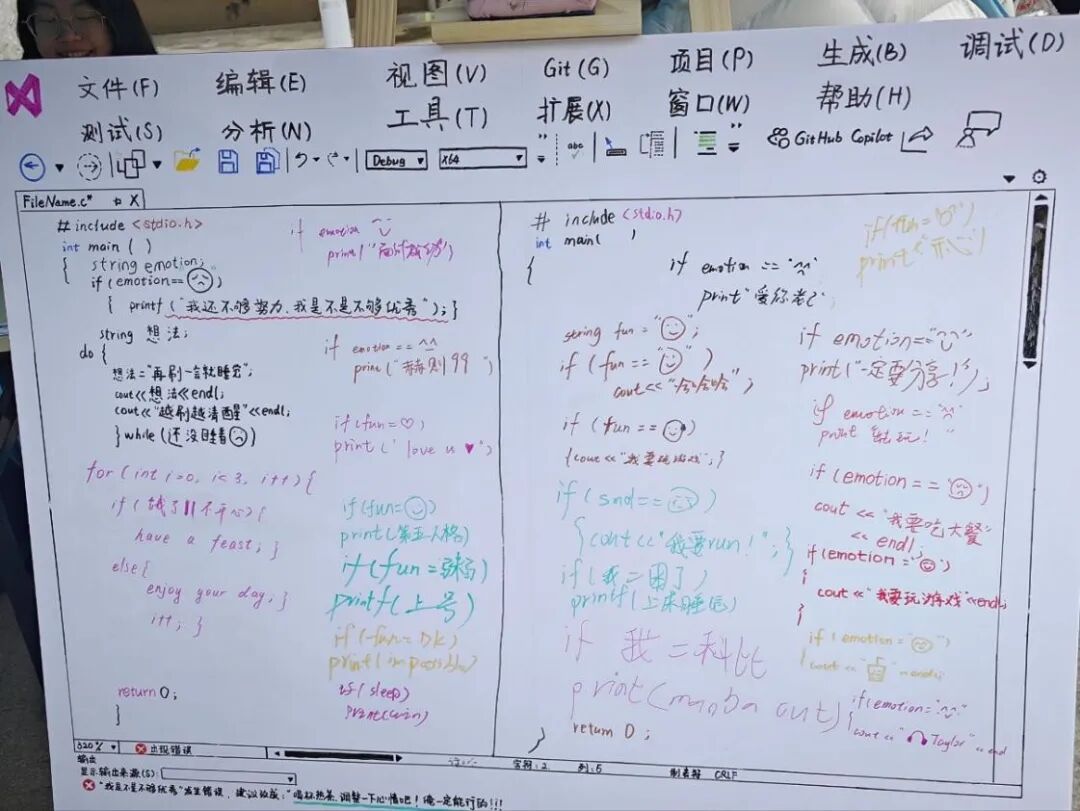 文件(F) 编辑(E) 视图(V) Git(G) 项目(P) 生成(B) 调试(D)
测试(S) 分析(N) 工具(T) 扩展(X) 窗口(W) 帮助(H)
Debug x64 abc GitHub Copilot
FileName.c* X
# include <stdio.h>
int main ( )
{ string emotion;
if (emotion==
)
{ printf ("我还不够努力、我是不是不够优秀"); }
string 想法;
do {
想法="再刷一会就睡觉"
cout<<想法<<endl;
cout<<"越刷越清醒"<<endl;
} while (还没睡着
)
for (int i=0, i<3, i++) {
if (饿了||不开心) {
have a feast; }
else {
enjoy your day; }
i++; }
return 0;
}
if emotion
print("
")
if emotion ==
print("
则99 ")
if (fun=♡)
print (' love u ♥')
if (fun=
)
print(第五人格)
if (fun =
)
printf(上号)
if (fun= Dk)
print(impossible)
if (sleep)
print(win)
# include <stdio.h>
int main( )
{
if emotion == "^^"
print"爱你老
string fun = "
";
if ( fun == "
" )
cout<<"哈哈哈";
if ( fun ==
)
{cout<<"我要玩游戏";}
if( snd==
)
{cout<<"我要run!";}
if(我=困了)
printf(上来睡觉)
if 我=科比
print(manba out)
return 0 ;
}
if(fun =
")
print("开心!
if emotion=="
"
print("一定要分享!");
if emotion == "
"
print
玩! "
if (emotion == "
")
cout <<"我要吃大餐"
<< endl;
if (emotion ="
")
{
cout <<"我要玩游戏"<<endl;
}
if ( emotion = "
")
{ cout <<"
"<endl;
if(emotion="
"
{ cout<<"
Taylor"<<end
320% 出现错误
字符:2 列:5 制表符 CRLF
输出
显示输出来源(S):
"我是不是不够优秀"发生错误,建议改成:"喝杯热茶,调整一下心情吧!俺一定能行的!!!